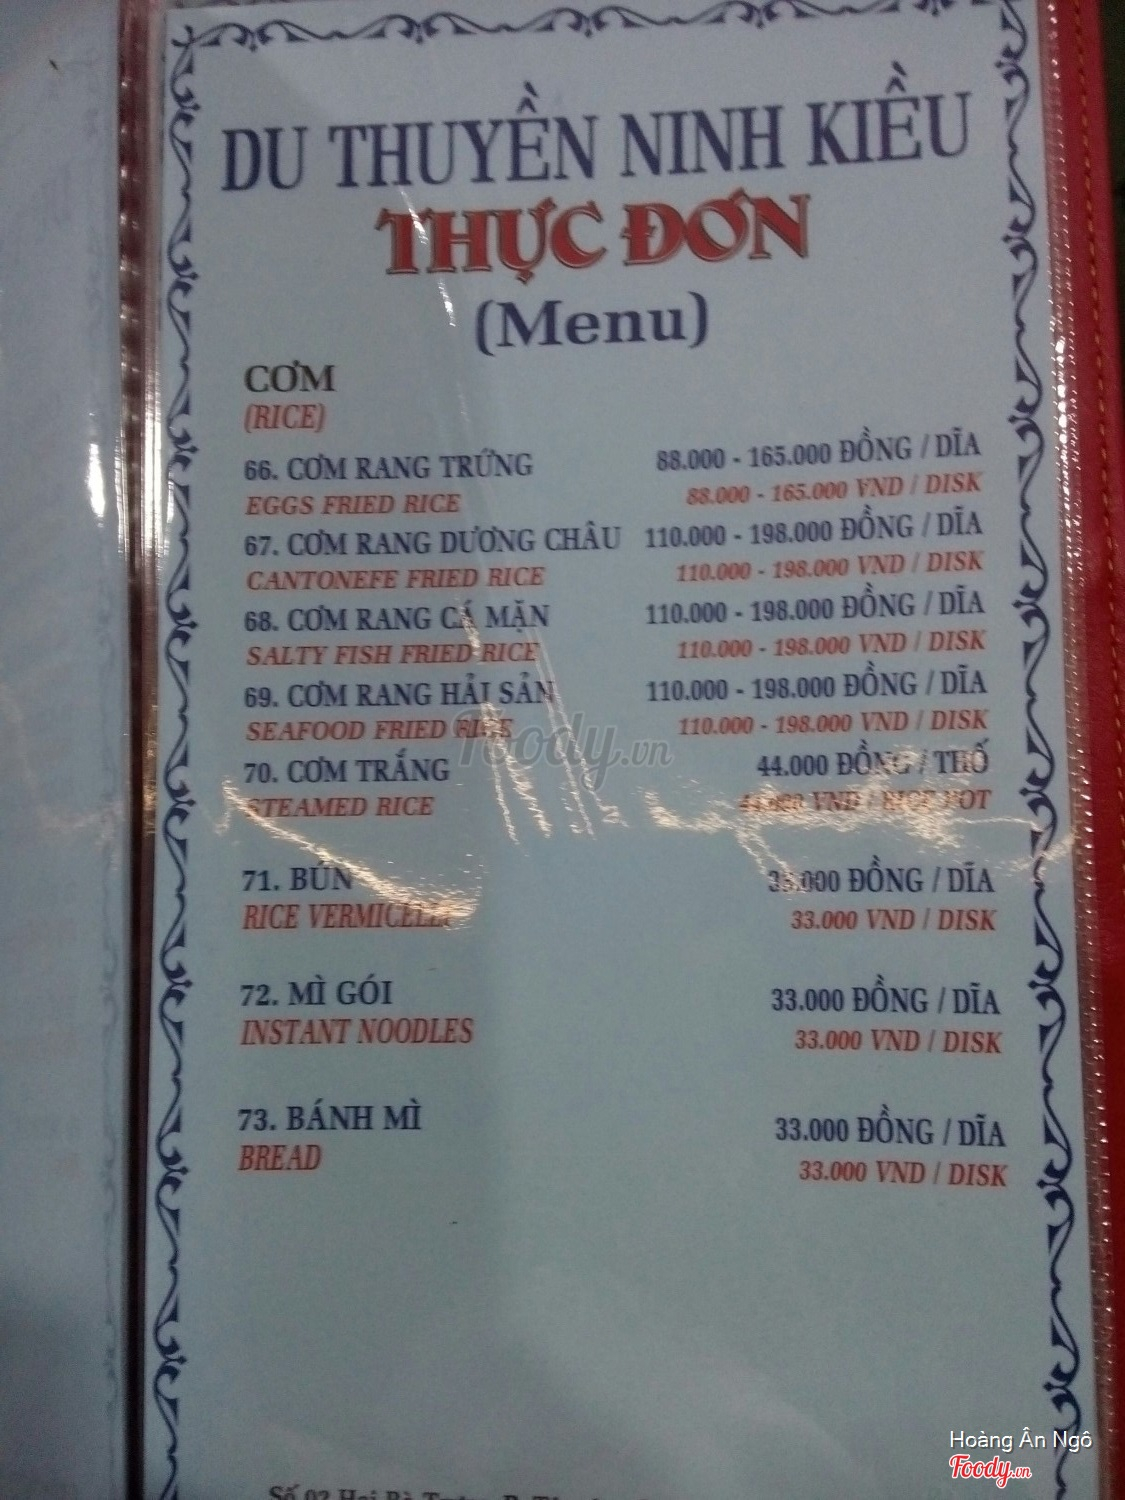 DU THUYỀN NINH KIỀU
THỰC ĐƠN
(Menu)
CƠM
(RICE)
66. CƠM RANG TRỨNG 88.000 - 165.000 ĐỒNG / DĨA
EGGS FRIED RICE 88.000 - 165.000 VND / DISK
67. CƠM RANG DƯƠNG CHÂU 110.000 - 198.000 ĐỒNG / DĨA
CANTONEFE FRIED RICE 110.000 - 198.000 VND / DISK
68. CƠM RANG CÁ MẶN 110.000 - 198.000 ĐỒNG / DĨA
SALTY FISH FRIED RICE 110.000 - 198.000 VND / DISK
69. CƠM RANG HẢI SẢN 110.000 - 198.000 ĐỒNG / DĨA
SEAFOOD FRIED RICE 110.000 - 198.000 VND / DISK
Foody.vn
70. CƠM TRẮNG 44.000 ĐỒNG / THỐ
STEAMED RICE 44.000 VND / RICE POT
71. BÚN 33.000 ĐỒNG / DĨA
RICE VERMICELLI 33.000 VND / DISK
72. MÌ GÓI 33.000 ĐỒNG / DĨA
INSTANT NOODLES 33.000 VND / DISK
73. BÁNH MÌ 33.000 ĐỒNG / DĨA
BREAD 33.000 VND / DISK
Hoàng Ân Ngô
Foody.vn
Số 02 Hai Bà